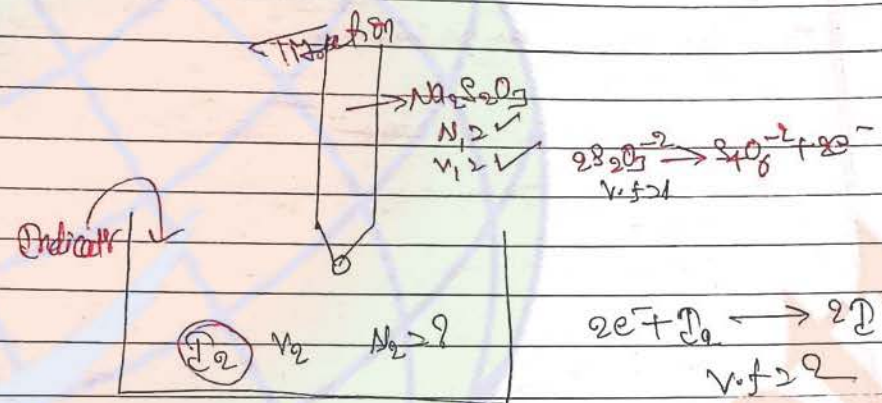 Titration
→ Na₂S₂O₃
N₁ = ✓
V₁ = ✓
2S₂O₃⁻² → S₄O₆⁻² + 2e⁻
V.f = 1
Indicator
I₂ V₂ N₂ = ?
2e⁻ + I₂ → 2I
V.f = 2